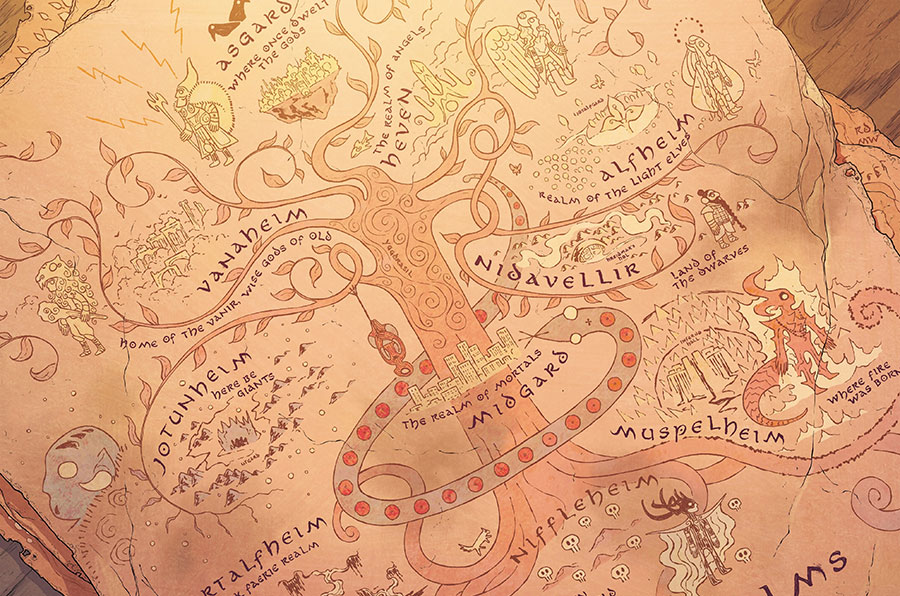 ASGARD
WHERE ONCE DWELT
THE GODS
THE REALM OF ANGELS
HEVEN
ALFHEIM
REALM OF THE LIGHT ELVES
VANAHEIM
HOME OF THE VANIR, WISE GODS OF OLD
YGGDRASIL
NIDAVELLIR
LAND OF
THE DWARVES
JOTUNHEIM
HERE BE
GIANTS
UTGARD
THE REALM OF MORTALS
MIDGARD
MUSPELHEIM
WHERE FIRE
WAS BORN
NIFFLEHEIM
RTALFHEIM
K FAERIE REALM
LMS
RD
MW